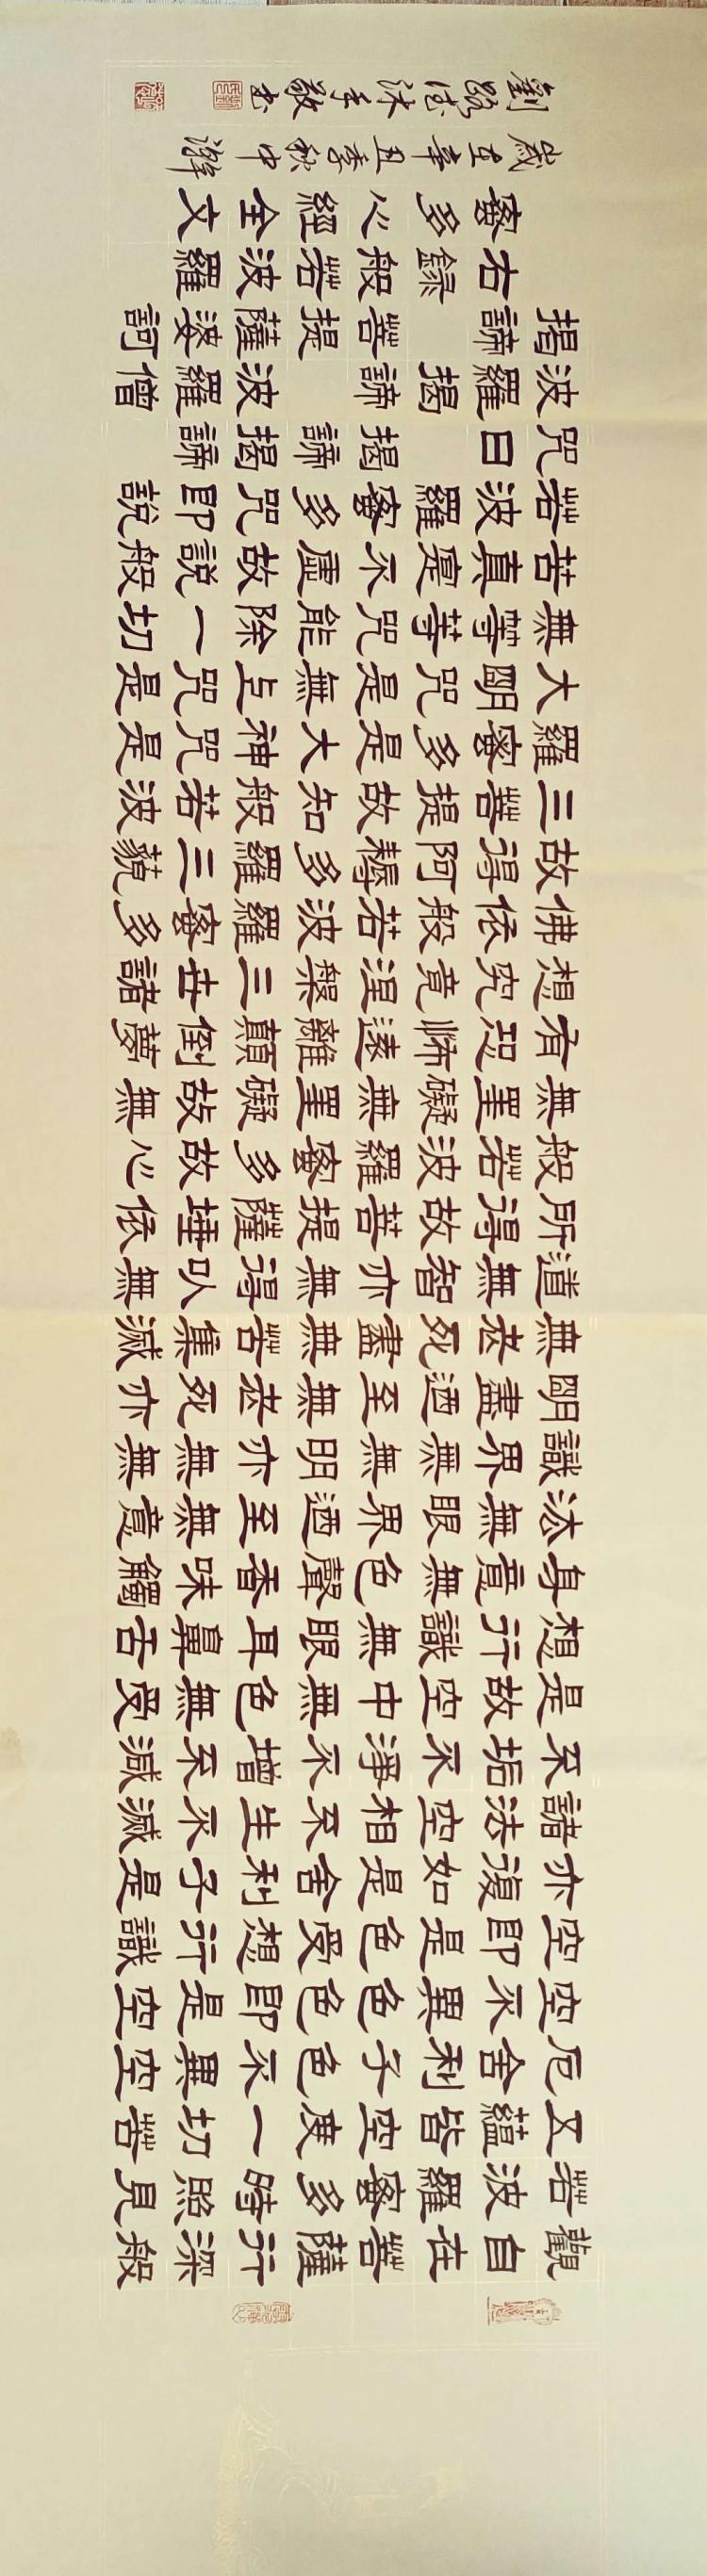 觀自在菩薩行深般
若波羅蜜多時照見
五蘊皆空度一切苦
厄舍利子色不異空
空不異色色即是空
空即是色受想行識
亦復如是舍利子是
諸法空相不生不滅
不垢不淨不增不減
是故空中無色無受
想行識無眼耳鼻舌
身意無色聲香味觸
法無眼界迺至無意
識界無無明亦無無
明盡迺至無老死亦
無老死盡無苦集滅
道無智亦無得以無
所得故菩提薩埵依
般若波羅蜜多故心
無罣礙無罣礙故無
有恐怖遠離顛倒夢
想究竟涅槃三世諸
佛依般若波羅蜜多
故得阿耨多羅三藐
三菩提故知般若波
羅蜜多是大神咒是
大明咒是無上咒是
無等等咒能除一切
苦真實不虛故說般
若波羅蜜多咒即說
咒曰 揭諦揭諦
波羅揭諦 波羅僧
揭諦 菩提薩婆訶
右錄般若波羅
蜜多心經全文
歲在辛丑季秋中澣
劉沐手敬書